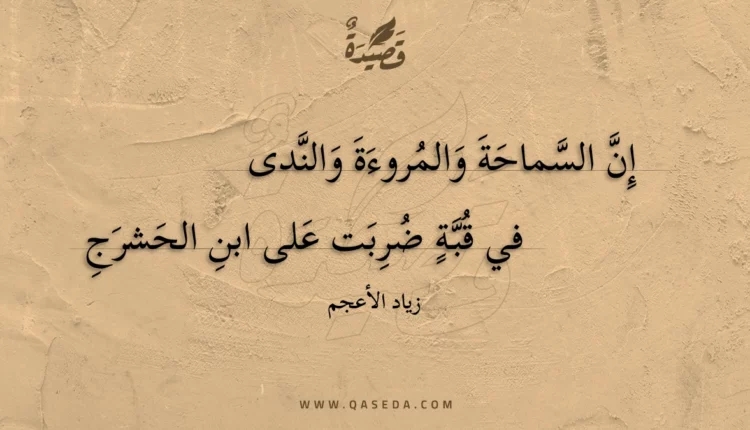 قَصِيْدَةٌ
إِنَّ السَّماحَةَ وَالمُروءَةَ وَالنَّدى
في قُبَّةٍ ضُرِبَت عَلى ابنِ الحَشرَجِ
زياد الأعجم
WWW.QASEDA.COM